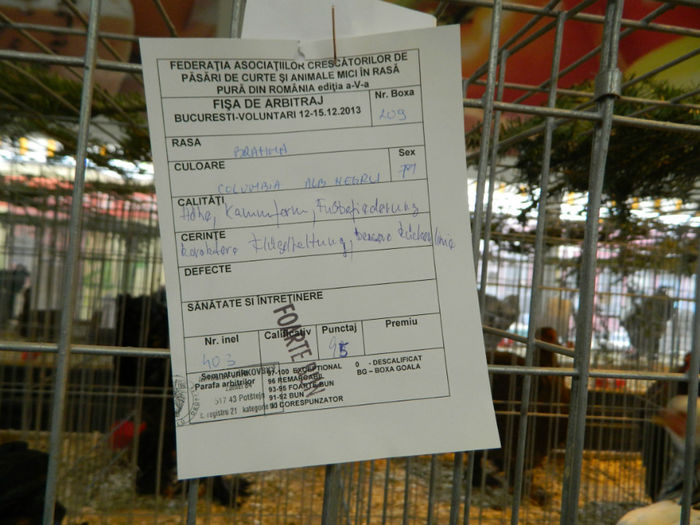 FEDERAŢIA ASOCIAŢIILOR CRESCĂTORILOR DE
PĂSĂRI DE CURTE ŞI ANIMALE MICI ÎN RASĂ
PURĂ DIN ROMÂNIA ediţia a-V-a
FIŞA DE ARBITRAJ
BUCURESTI-VOLUNTARI 12-15.12.2013
Nr. Boxa
209
RASA
BRAHMA
CULOARE
COLUMBIA ALB NEGRU
Sex
CALITĂŢI
Höhe, Kammform, Fußbefiederung
CERINŢE
korrektere Flügelhaltung, bessere Rückenlinie
DEFECTE
SĂNĂTATE SI ÎNTREŢINERE
Nr. inel
Calificativ
Punctaj
Premiu
403
FORTE BUN
95
Semnaturile
Parafa arbitrilor
517 43 Potštejn
č. registru 21 kategorie
97-100 EXCEPTIONAL
96 REMARCABIL
93-95 FOARTE BUN
91-92 BUN
90 CORESPUNZATOR
0 - DESCALIFICAT
BG – BOXA GOALA